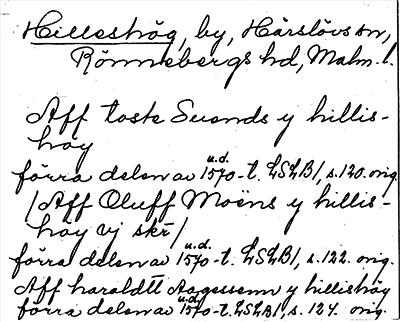 Hilleshög, by, Härslövs sn,
Rönnebergs hd, Malm. l.
Aff toste Suends y hillis-
höy
förra delen av u.d. 1570-t. LSLB1, s. 120. orig.
/Aff Oluff Moëns y hillis-
höy vj skr/
förra delen av u.d. 1570-t. LSLB1, s. 122. orig.
Aff haraldtt Aagessenn y hillishöy
förra delen av u.d. 1570-t. LSLB1, s. 124. orig.